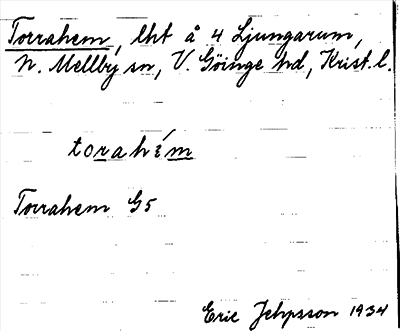 Torrahem, lht å 4 Ljungarum,
N. Mellby sn, V. Göinge hd, Krist. l.
torahém
Torrahem G5
Eric Jehpsson 1934